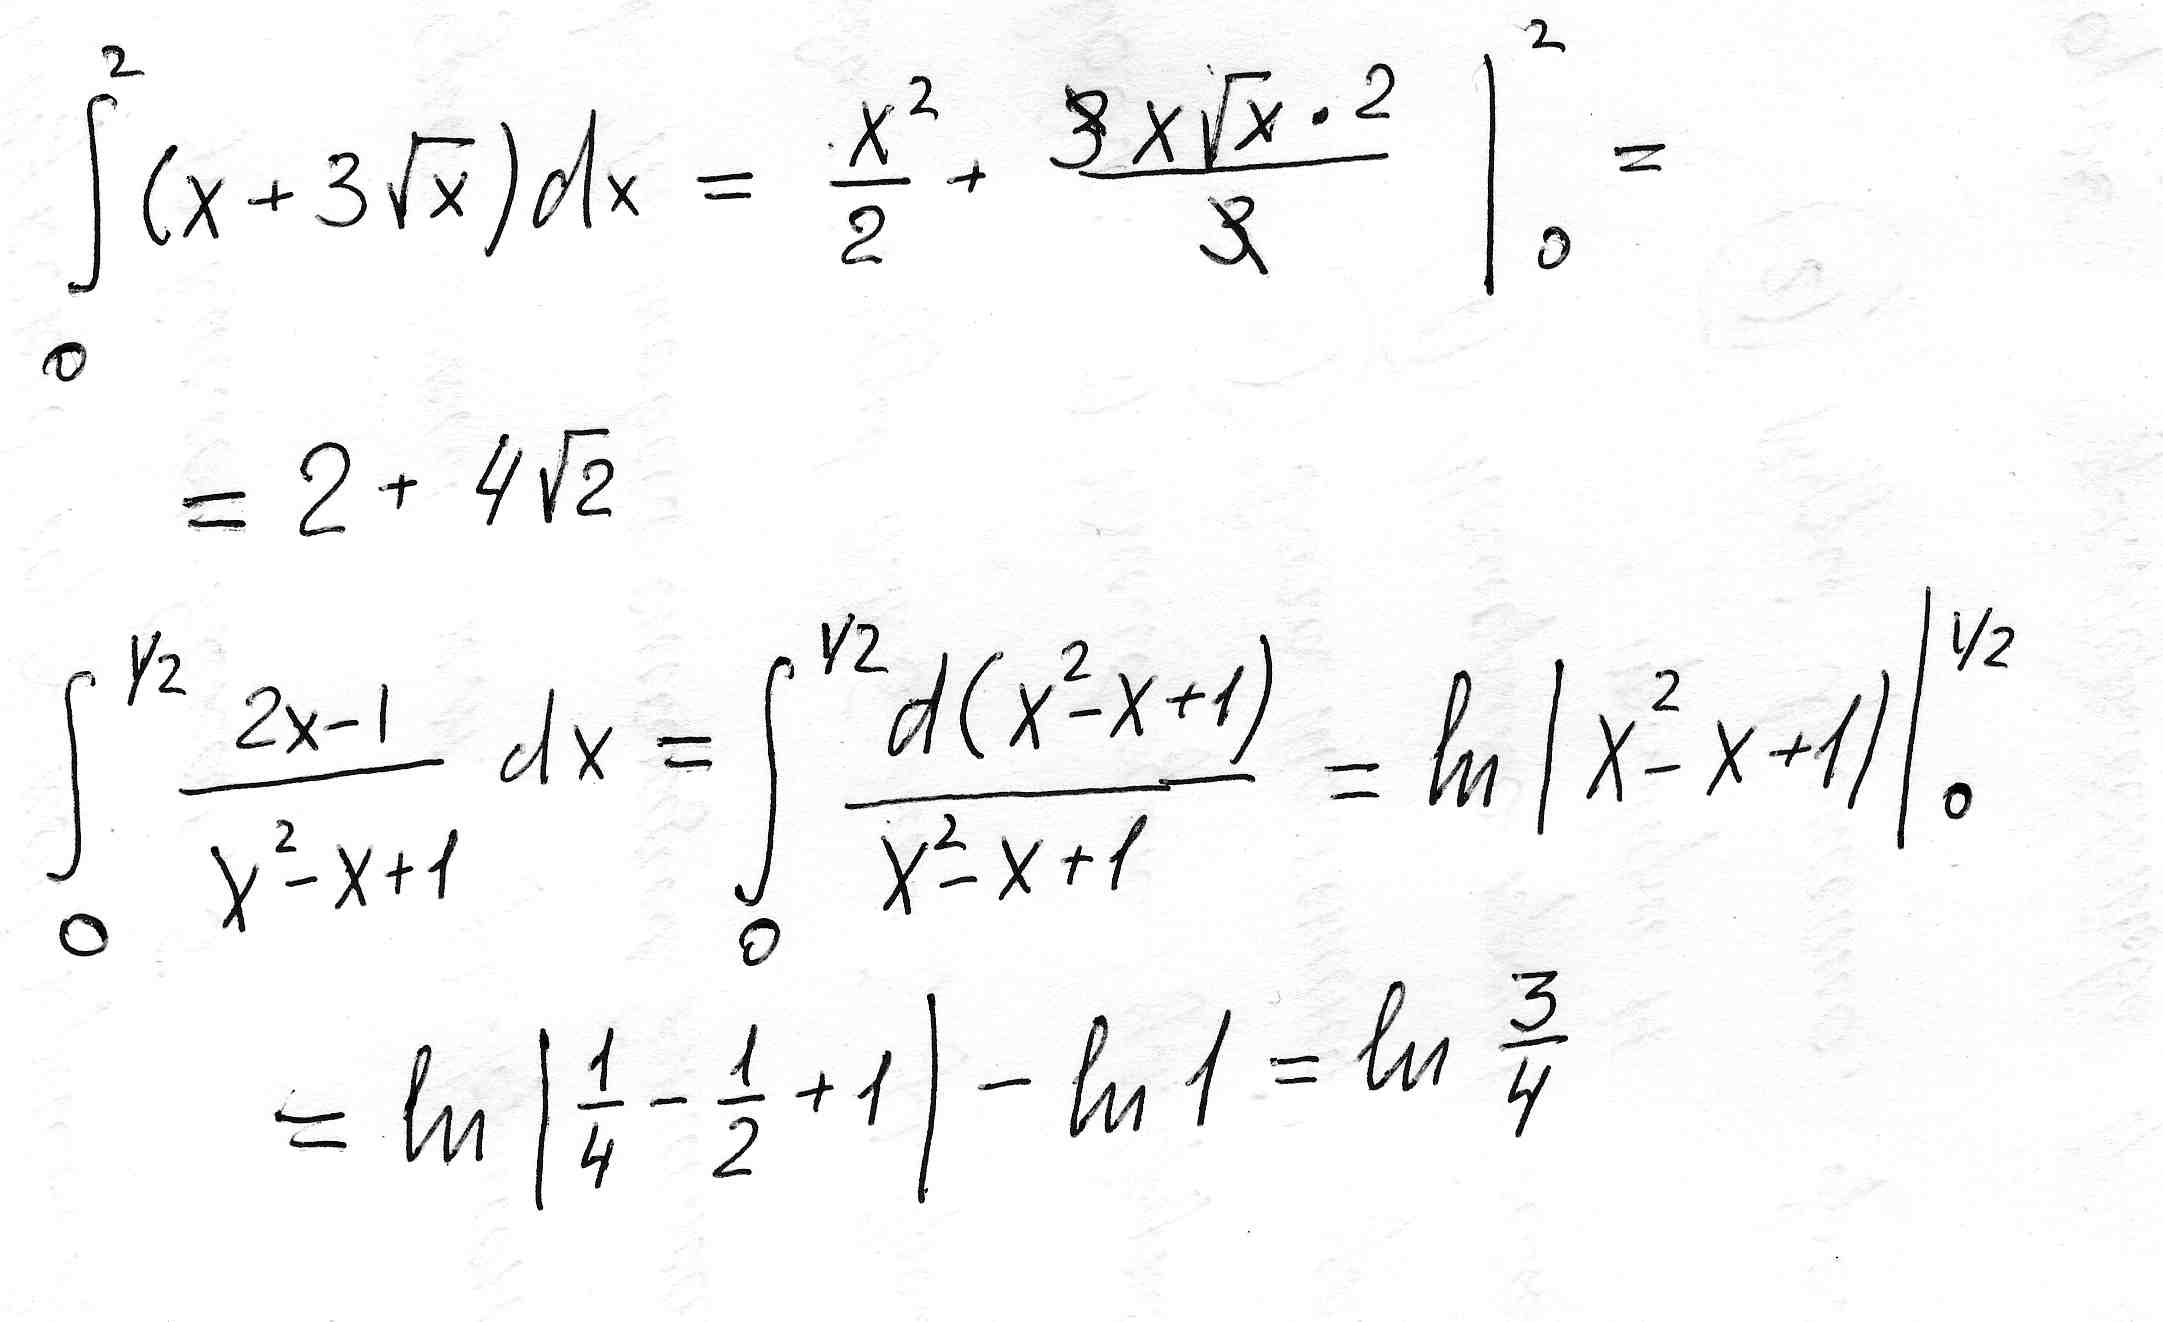 ∫₀² (x + 3√x) dx = x²/2 + 3x√x · 2/3 |₀² =
= 2 + 4√2
∫₀^1/2 (2x-1)/(x²-x+1) dx = ∫₀^1/2 d(x²-x+1)/(x²-x+1) = ln |x²-x+1| |₀^1/2
= ln |1/4 - 1/2 + 1| - ln 1 = ln 3/4